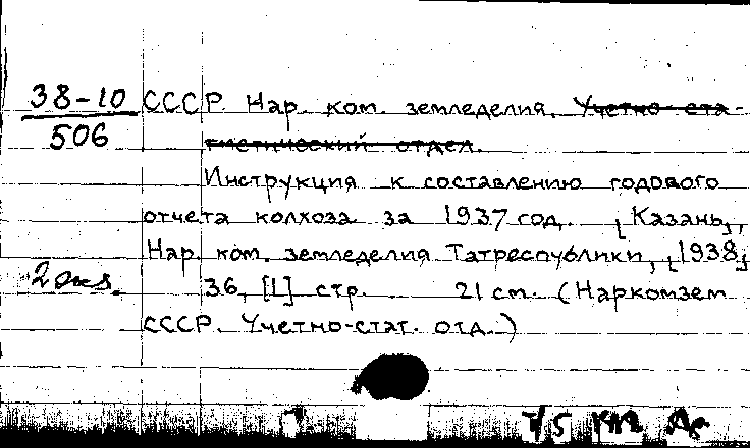 38-10
506
СССР. Нар. ком. земледелия. Учетно-ста-
тистический отдел.
Инструкция к составлению годового
отчета колхоза за 1937 год. [Казань],
Нар. ком. земледелия Татреспублики, [1938]
2 экз.
36, [1] стр. 21 см. (Наркомзем
СССР. Учетно-стат. отд.)